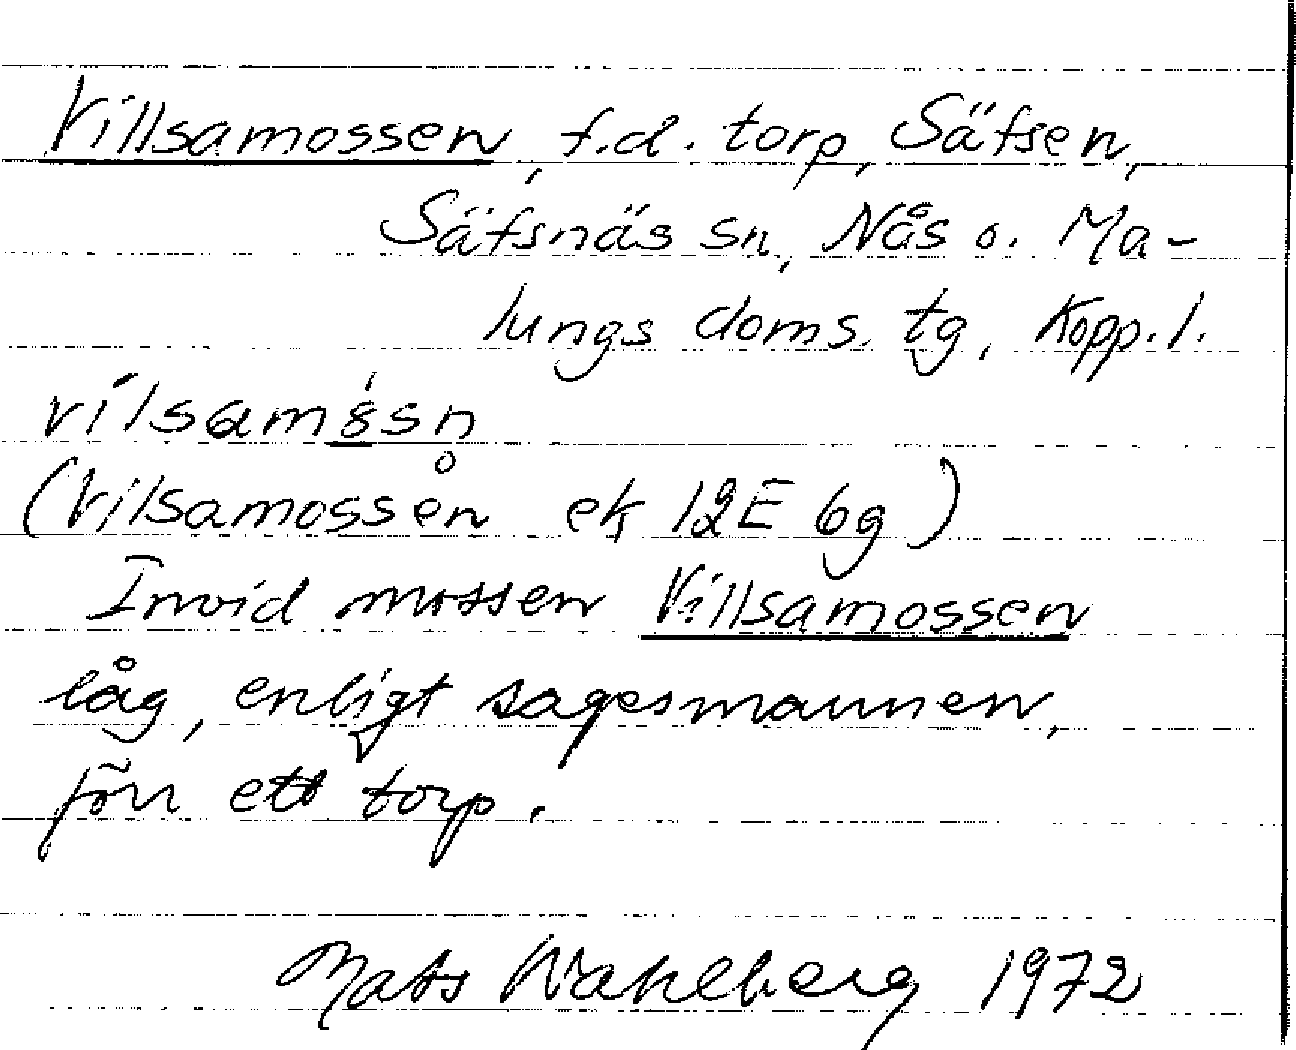 Villsamossen, f.d. torp, Säfsen,
Säfsnäs sn, Nås o. Ma-
lungs doms. tg, Kopp. l.
(Vilsamossen ek 12E 6g)
Invid mossen Villsamossen
låg, enligt sagesmannen,
förr ett torp.
Mats Wahlberg 1972